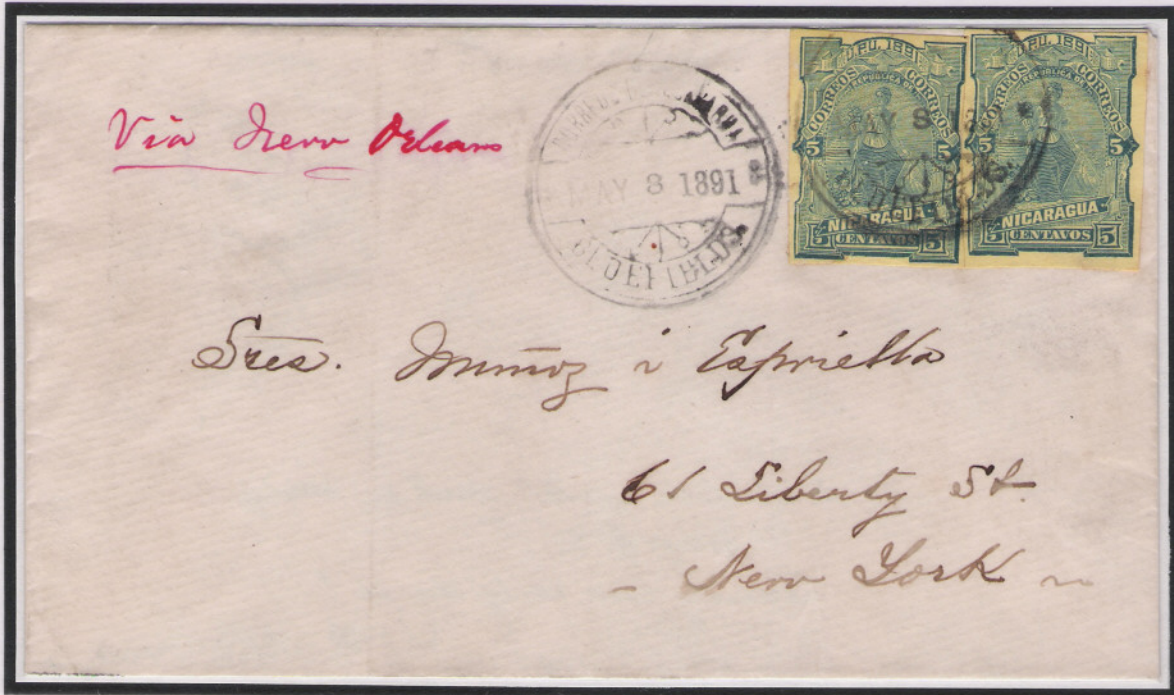 Via New Orleans
CORREOS
MAY 8 1891
BLUEFIELDS
U.P.U. 1891
CORREOS CORREOS
REPUBLICA DE
MAY 8
5 5
NICARAGUA
5 CENTAVOS 5
U.P.U. 1891
CORREOS CORREOS
REPUBLICA DE
5 5
NICARAGUA
5 CENTAVOS 5
Sres. Muñoz i Espriella
61 Liberty St.
- New York ~